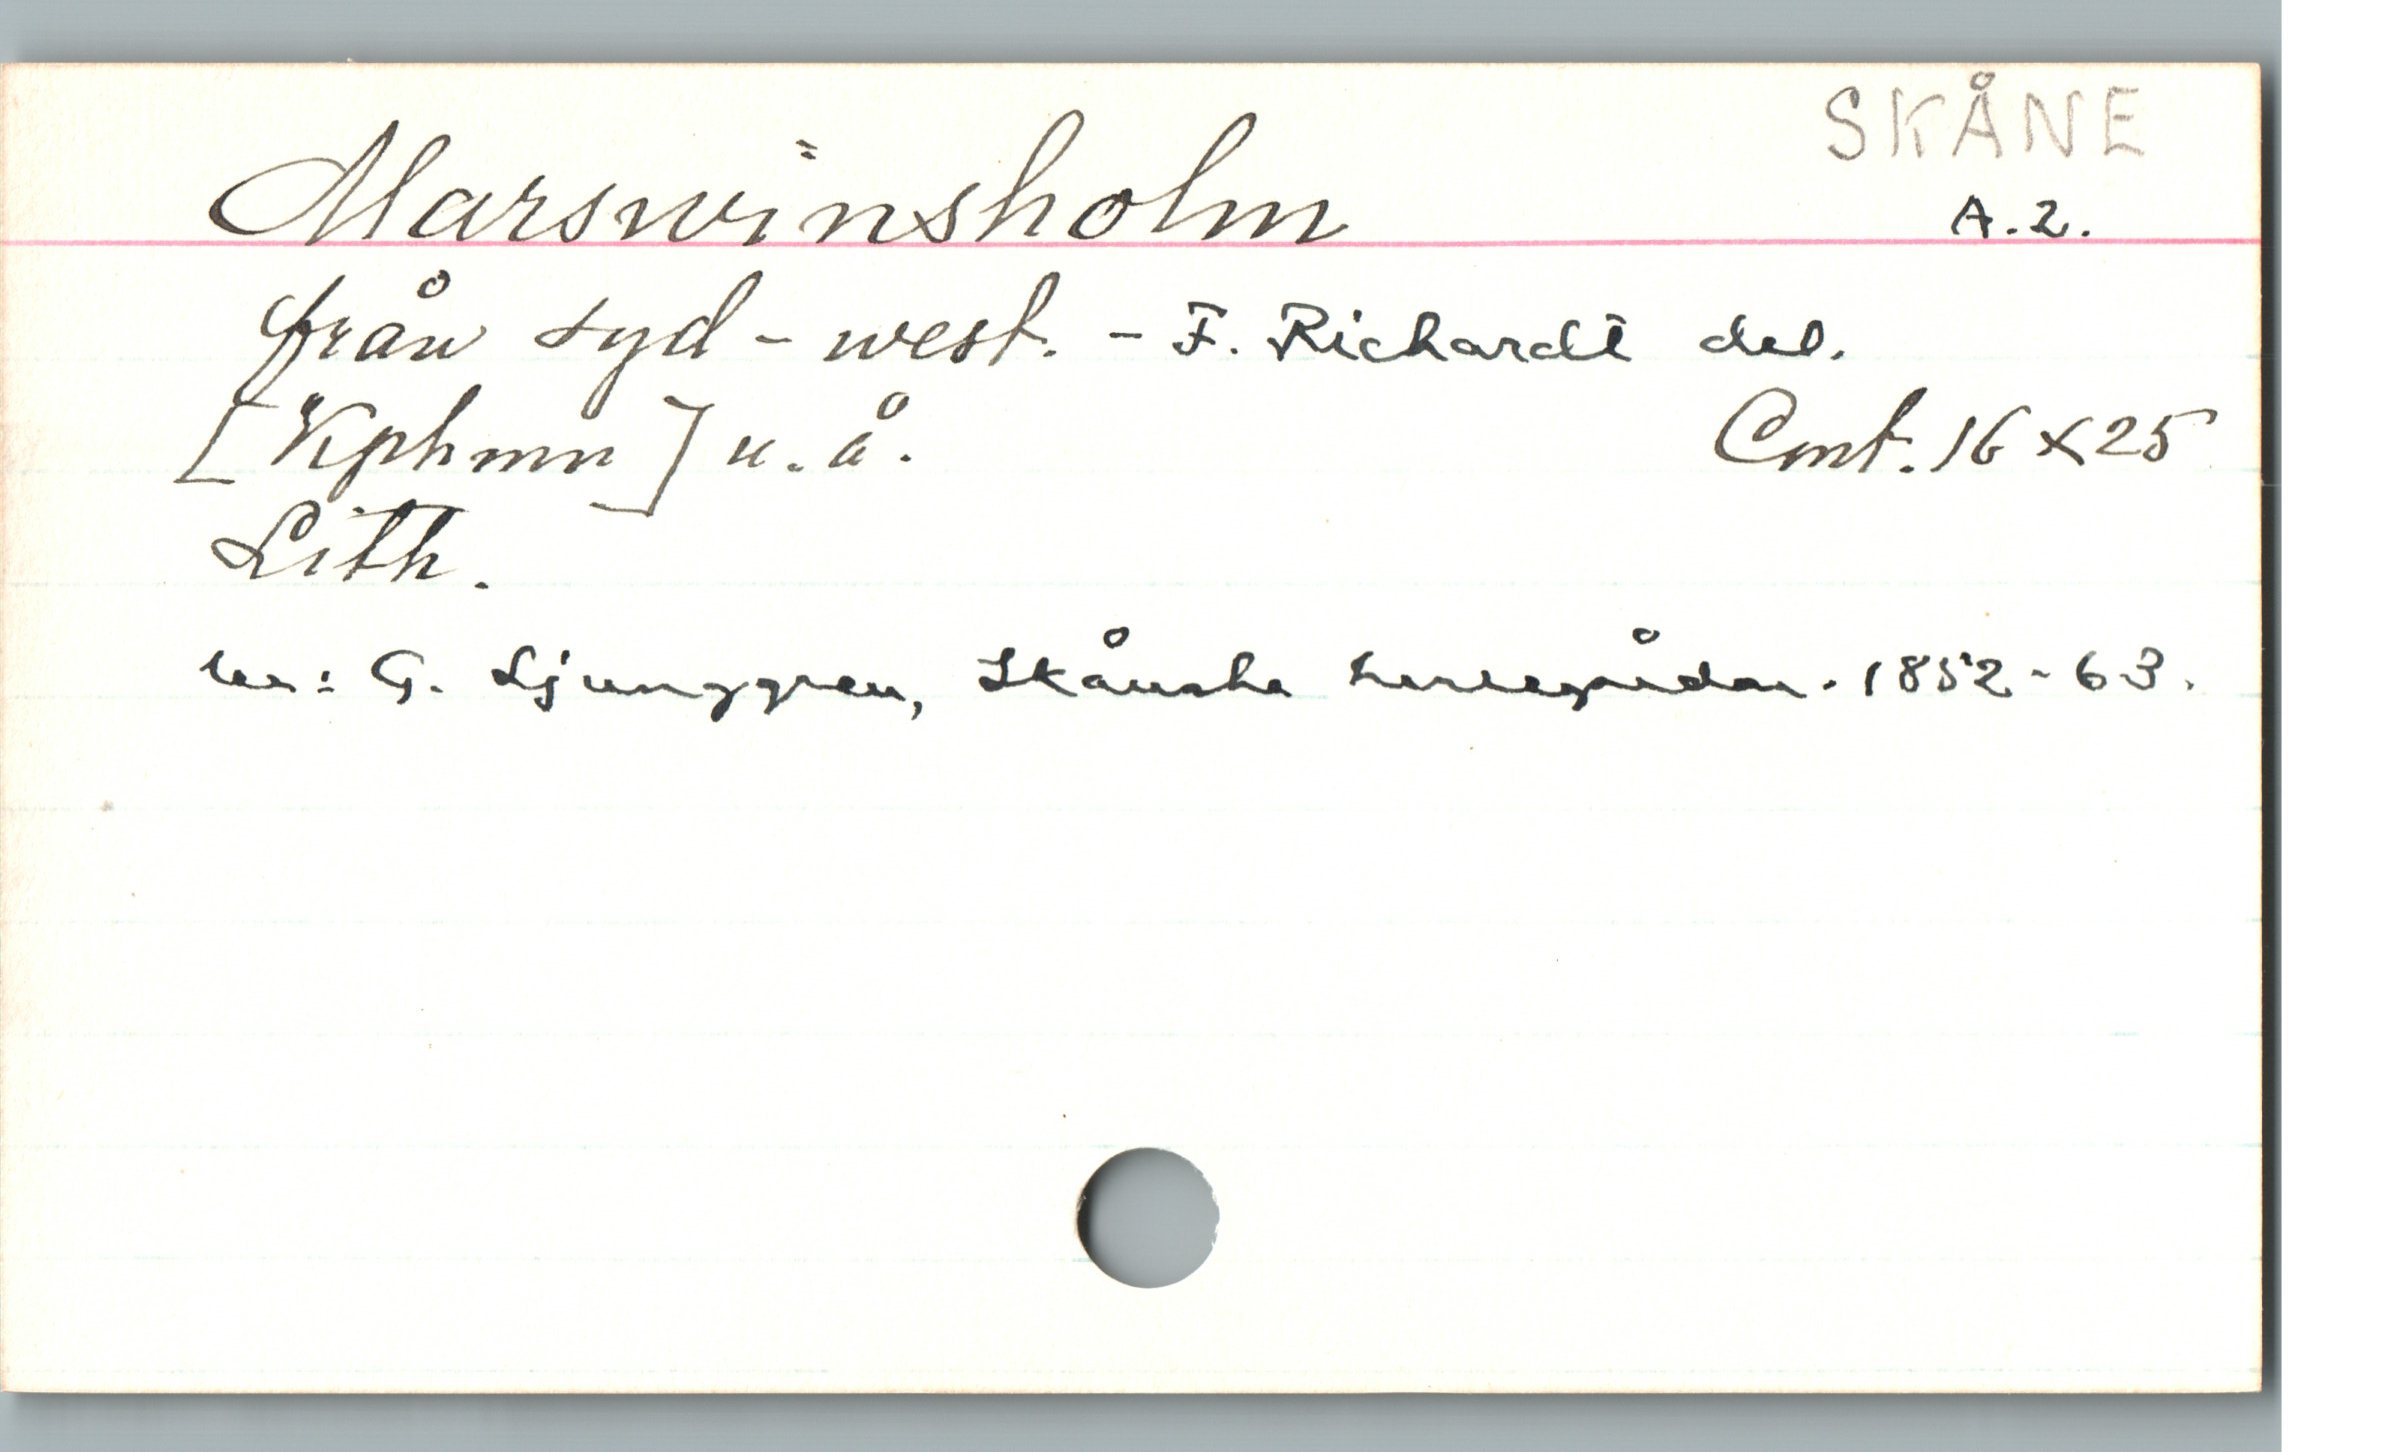 SKÅNE
Marswinsholm A.2.
från syd-west. - F. Richardt del.
[Kphmn] u. å. Cmt. 16 x 25
Lith.
Ur: G. Ljunggren, Skånska herregårdar. 1852-63.